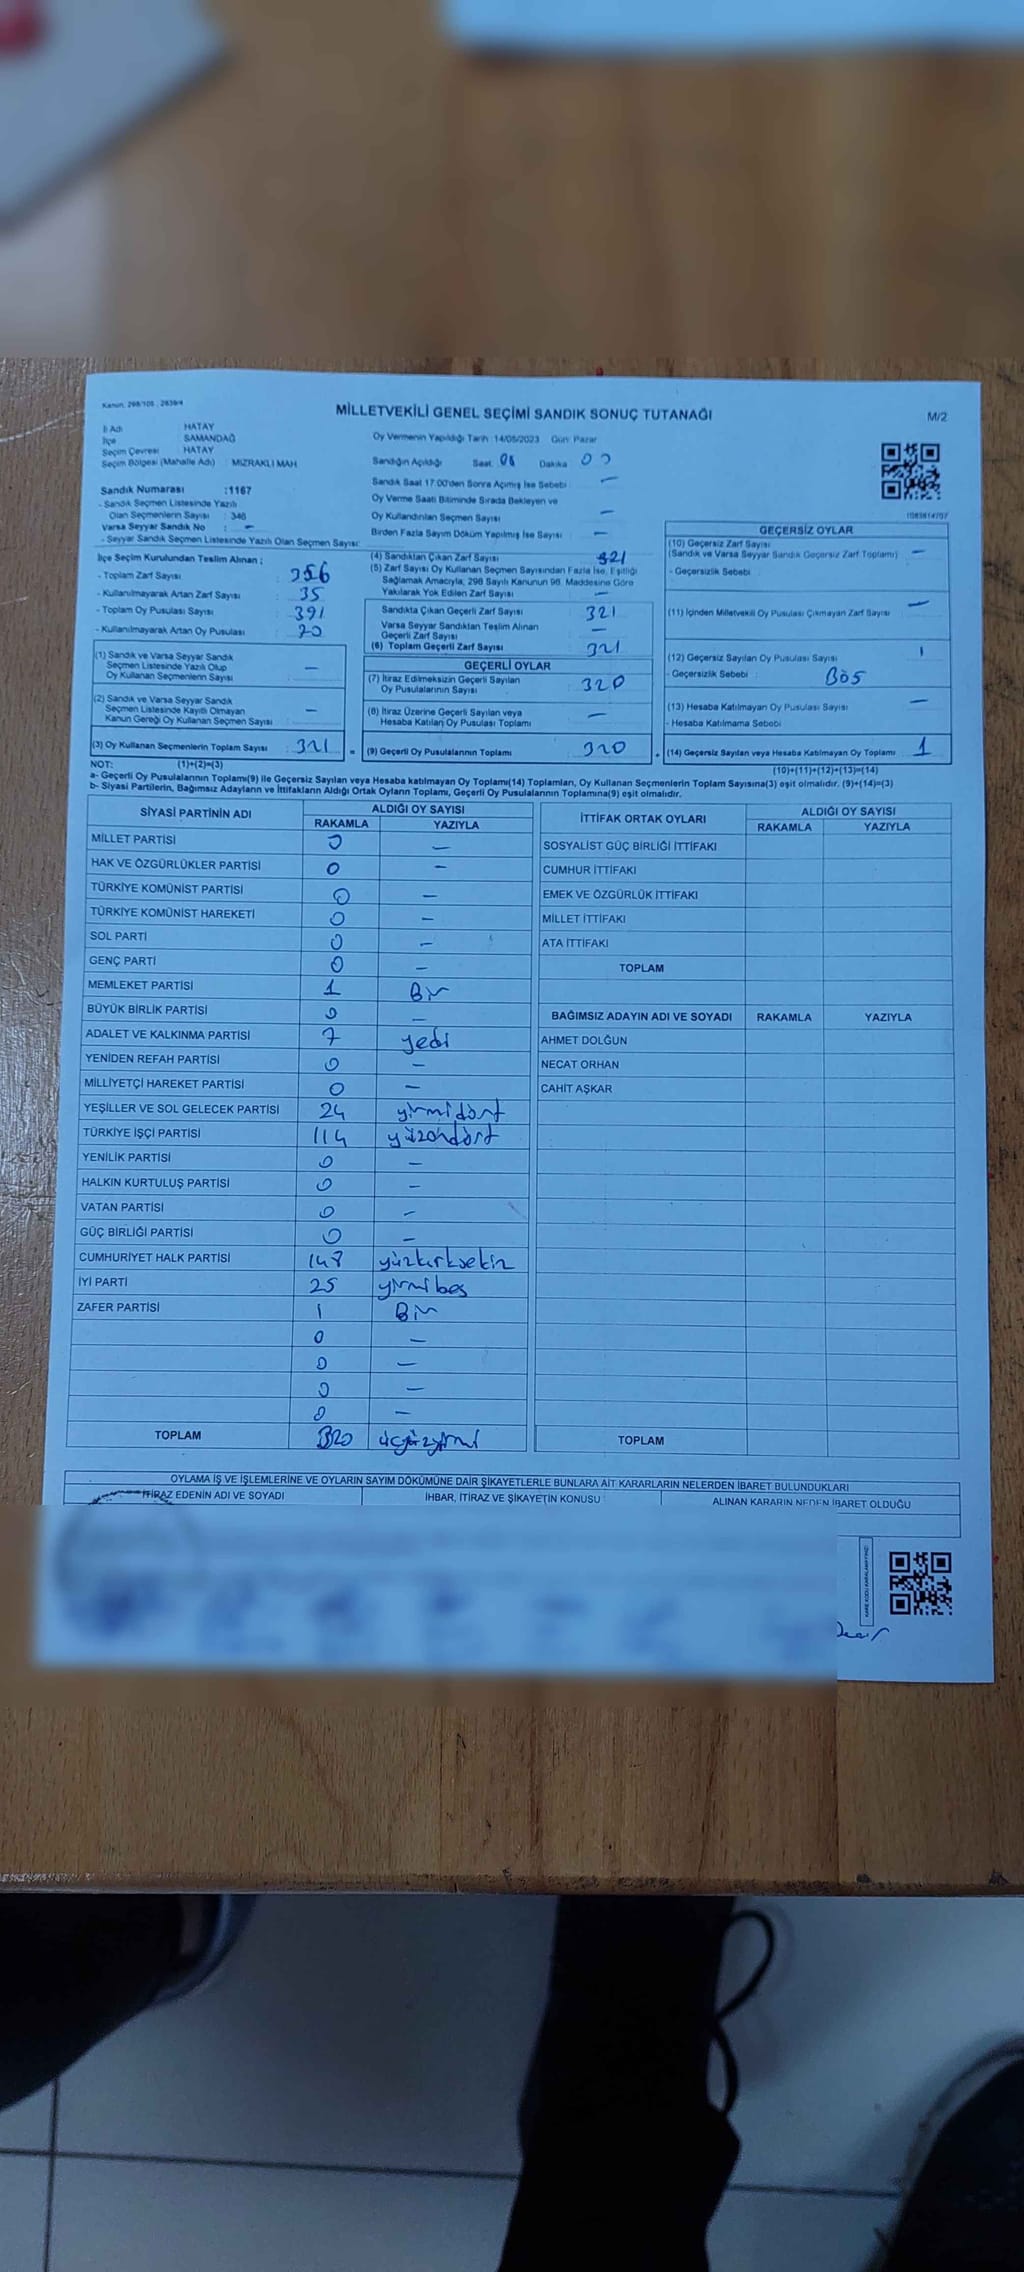 Kanun: 298/105 ; 2839/4
MİLLETVEKİLİ GENEL SEÇİMİ SANDIK SONUÇ TUTANAĞI
M/2
İl Adı HATAY
İlçe SAMANDAĞ
Seçim Çevresi HATAY
Seçim Bölgesi (Mahalle Adı) : MIZRAKLI MAH
Oy Vermenin Yapıldığı Tarih :14/05/2023 Gün: Pazar
Sandığın Açıldığı Saat: 08 Dakika 00
Sandık Saat 17:00'den Sonra Açımış İse Sebebi : —
Oy Verme Saati Bitiminde Sırada Bekleyen ve
Oy Kullandırılan Seçmen Sayısı —
Birden Fazla Sayım Döküm Yapılmış İse Sayısı : —
Sandık Numarası :1167
- Sandık Seçmen Listesinde Yazılı
Olan Seçmenlerin Sayısı : 346
Varsa Seyyar Sandık No : —
- Seyyar Sandık Seçmen Listesinde Yazılı Olan Seçmen Sayısı:
İlçe Seçim Kurulundan Teslim Alınan ;
- Toplam Zarf Sayısı : 356
- Kullanılmayarak Artan Zarf Sayısı : 35
- Toplam Oy Pusulası Sayısı : 391
- Kullanılmayarak Artan Oy Pusulası : 70
(1) Sandık ve Varsa Seyyar Sandık
Seçmen Listesinde Yazılı Olup
Oy Kullanan Seçmenlerin Sayısı : —
(2) Sandık ve Varsa Seyyar Sandık
Seçmen Listesinde Kayıtlı Olmayan
Kanun Gereği Oy Kullanan Seçmen Sayısı : —
(3) Oy Kullanan Seçmenlerin Toplam Sayısı : 321 =
(4) Sandıktan Çıkan Zarf Sayısı : 321
(5) Zarf Sayısı Oy Kullanan Seçmen Sayısından Fazla İse, Eşitliği
Sağlamak Amacıyla, 298 Sayılı Kanunun 98. Maddesine Göre
Yakılarak Yok Edilen Zarf Sayısı : —
Sandıkta Çıkan Geçerli Zarf Sayısı : 321
Varsa Seyyar Sandıktan Teslim Alınan
Geçerli Zarf Sayısı : —
(6) Toplam Geçerli Zarf Sayısı : 321
GEÇERLİ OYLAR
(7) İtiraz Edilmeksizin Geçerli Sayılan
Oy Pusulalarının Sayısı : 320
(8) İtiraz Üzerine Geçerli Sayılan veya
Hesaba Katılan Oy Pusulası Toplamı : —
(9) Geçerli Oy Pusulalarının Toplamı : 320 +
GEÇERSİZ OYLAR
(10) Geçersiz Zarf Sayısı
(Sandık ve Varsa Seyyar Sandık Geçersiz Zarf Toplamı) : —
- Geçersizlik Sebebi :
(11) İçinden Milletvekili Oy Pusulası Çıkmayan Zarf Sayısı : —
(12) Geçersiz Sayılan Oy Pusulası Sayısı : 1
- Geçersizlik Sebebi : BOŞ
(13) Hesaba Katılmayan Oy Pusulası Sayısı : —
- Hesaba Katılmama Sebebi
(14) Geçersiz Sayılan veya Hesaba Katılmayan Oy Toplamı : 1
NOT: (1)+(2)=(3)
(10)+(11)+(12)+(13)=(14)
a- Geçerli Oy Pusulalarının Toplamı(9) ile Geçersiz Sayılan veya Hesaba katılmayan Oy Toplamı(14) Toplamları, Oy Kullanan Seçmenlerin Toplam Sayısına(3) eşit olmalıdır. (9)+(14)=(3)
b- Siyasi Partilerin, Bağımsız Adayların ve İttifakların Aldığı Ortak Oyların Toplamı, Geçerli Oy Pusulalarının Toplamına(9) eşit olmalıdır.
SİYASİ PARTİNİN ADI ALDIĞI OY SAYISI
RAKAMLA YAZIYLA
MİLLET PARTİSİ 0 —
HAK VE ÖZGÜRLÜKLER PARTİSİ 0 —
TÜRKİYE KOMÜNİST PARTİSİ 0 —
TÜRKİYE KOMÜNİST HAREKETİ 0 —
SOL PARTİ 0 —
GENÇ PARTİ 0 —
MEMLEKET PARTİSİ 1 Bir
BÜYÜK BİRLİK PARTİSİ 0 —
ADALET VE KALKINMA PARTİSİ 7 yedi
YENİDEN REFAH PARTİSİ 0 —
MİLLİYETÇİ HAREKET PARTİSİ 0 —
YEŞİLLER VE SOL GELECEK PARTİSİ 24 yirmidört
TÜRKİYE İŞÇİ PARTİSİ 114 yüzondört
YENİLİK PARTİSİ 0 —
HALKIN KURTULUŞ PARTİSİ 0 —
VATAN PARTİSİ 0 —
GÜÇ BİRLİĞİ PARTİSİ 0 —
CUMHURİYET HALK PARTİSİ 148 yüzkırksekiz
İYİ PARTİ 25 yirmibeş
ZAFER PARTİSİ 1 Bir
0 —
0 —
0 —
0 —
TOPLAM 320 üçyüzyirmi
İTTİFAK ORTAK OYLARI ALDIĞI OY SAYISI
RAKAMLA YAZIYLA
SOSYALİST GÜÇ BİRLİĞİ İTTİFAKI
CUMHUR İTTİFAKI
EMEK VE ÖZGÜRLÜK İTTİFAKI
MİLLET İTTİFAKI
ATA İTTİFAKI
TOPLAM
BAĞIMSIZ ADAYIN ADI VE SOYADI RAKAMLA YAZIYLA
AHMET DOLĞUN
NECAT ORHAN
CAHİT AŞKAR
TOPLAM
OYLAMA İŞ VE İŞLEMLERİNE VE OYLARIN SAYIM DÖKÜMÜNE DAİR ŞİKAYETLERLE BUNLARA AİT KARARLARIN NELERDEN İBARET BULUNDUKLARI
İTİRAZ EDENİN ADI VE SOYADI İHBAR, İTİRAZ VE ŞİKAYETİN KONUSU ALINAN KARARIN NEDEN İBARET OLDUĞU
KARE KODU KARALAMAYINIZ!